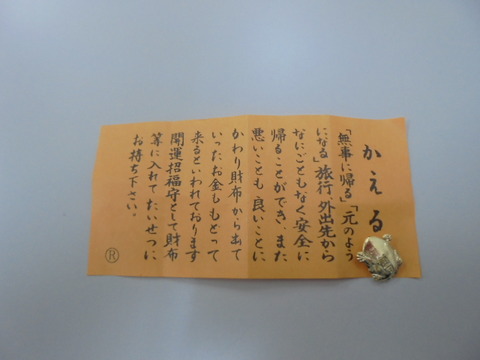 かえる
「無事に帰る」「元のよう
になる」旅行、外出先から
なにごともなく安全に
帰ることができ、また
悪いことも、良いことに、
かわり財布から出て
いったお金しもどって
来るといわれております
開運招福守として財布
等に入れてたいせつに
お持ち下さい。
®